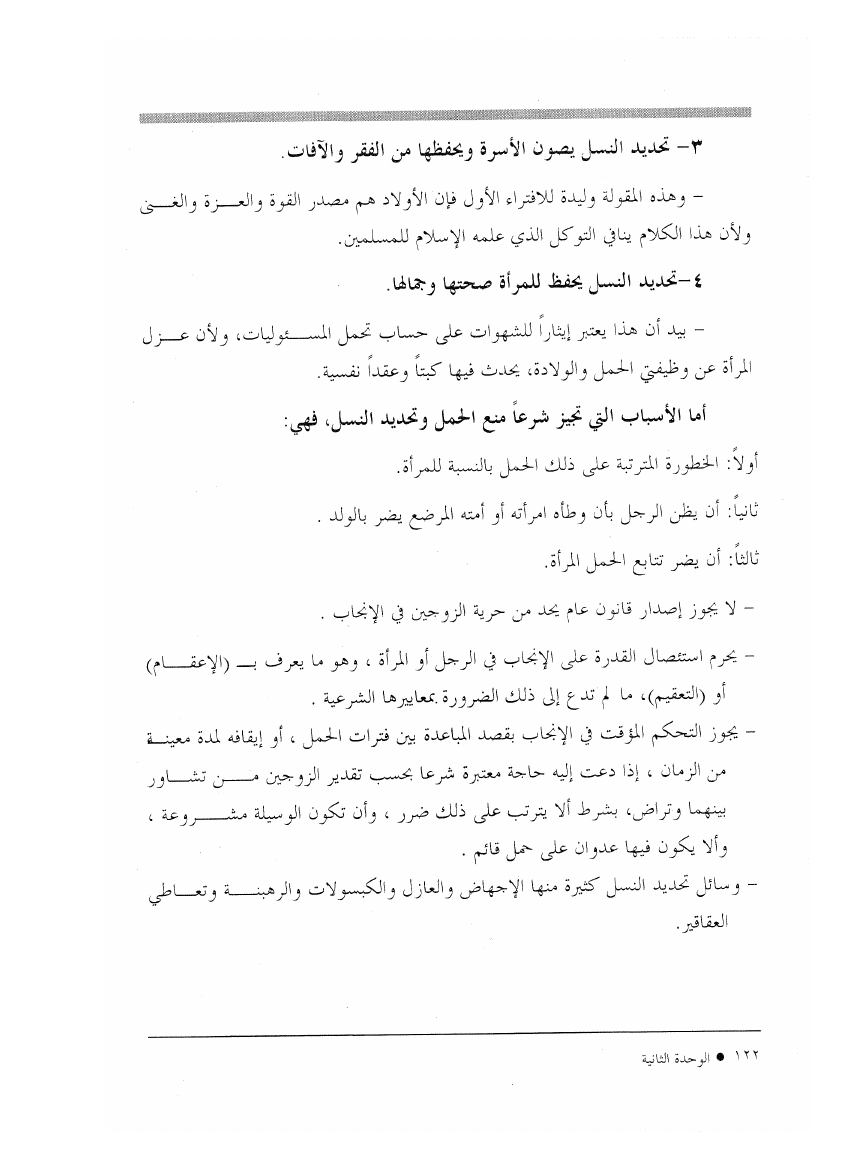 ٣- تحديد النسل يصون الأسرة ويحفظها من الفقر والآفات.
- وهذه المقولة وليدة للافتراء الأول فإن الأولاد هم مصدر القوة والعزة والغنى
ولأن هذا الكلام ينافي التوكل الذي علمه الإسلام للمسلمين.
٤-تحديد النسل يحفظ للمرأة صحتها وجمالها.
- بيد أن هذا يعتبر إيثاراً للشهوات على حساب تحمل المسئوليات، ولأن عزل
المرأة عن وظيفتي الحمل والولادة، يحدث فيها كبتاً وعقداً نفسية.
أما الأسباب التي تجيز شرعاً منع الحمل وتحديد النسل، فهي:
أولاً: الخطورة المترتبة على ذلك الحمل بالنسبة للمرأة.
ثانياً: أن يظن الرجل بأن وطأه امرأته أو أمته المرضع يضر بالولد .
ثالثاً: أن يضر تتابع الحمل المرأة.
- لا يجوز إصدار قانون عام يحد من حرية الزوجين في الإنجاب .
- يحرم استئصال القدرة على الإنجاب في الرجل أو المرأة ، وهو ما يعرف بـ (الإعقام)
أو (التعقيم)، ما لم تدع إلى ذلك الضرورة بمعاييرها الشرعية .
- يجوز التحكم المؤقت في الإنجاب بقصد المباعدة بين فترات الحمل ، أو إيقافه لمدة معينة
من الزمان ، إذا دعت إليه حاجة معتبرة شرعا بحسب تقدير الزوجين من تشاور
بينهما وتراض، بشرط ألا يترتب على ذلك ضرر ، وأن تكون الوسيلة مشروعة ،
وألا يكون فيها عدوان على حمل قائم .
- وسائل تحديد النسل كثيرة منها الإجهاض والعازل والكبسولات والرهبنة وتعاطي
العقاقير.
١٢٢ ● الوحدة الثانية